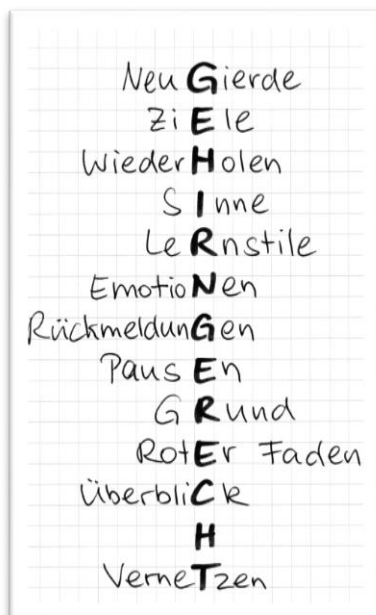 NeuGierde
ZiEle
WiederHolen
SInne
LeRnstile
EmotioNen
RückmeldunGen
PausEn
GRund
RotEr Faden
ÜberbliCk
H
VerneTzen